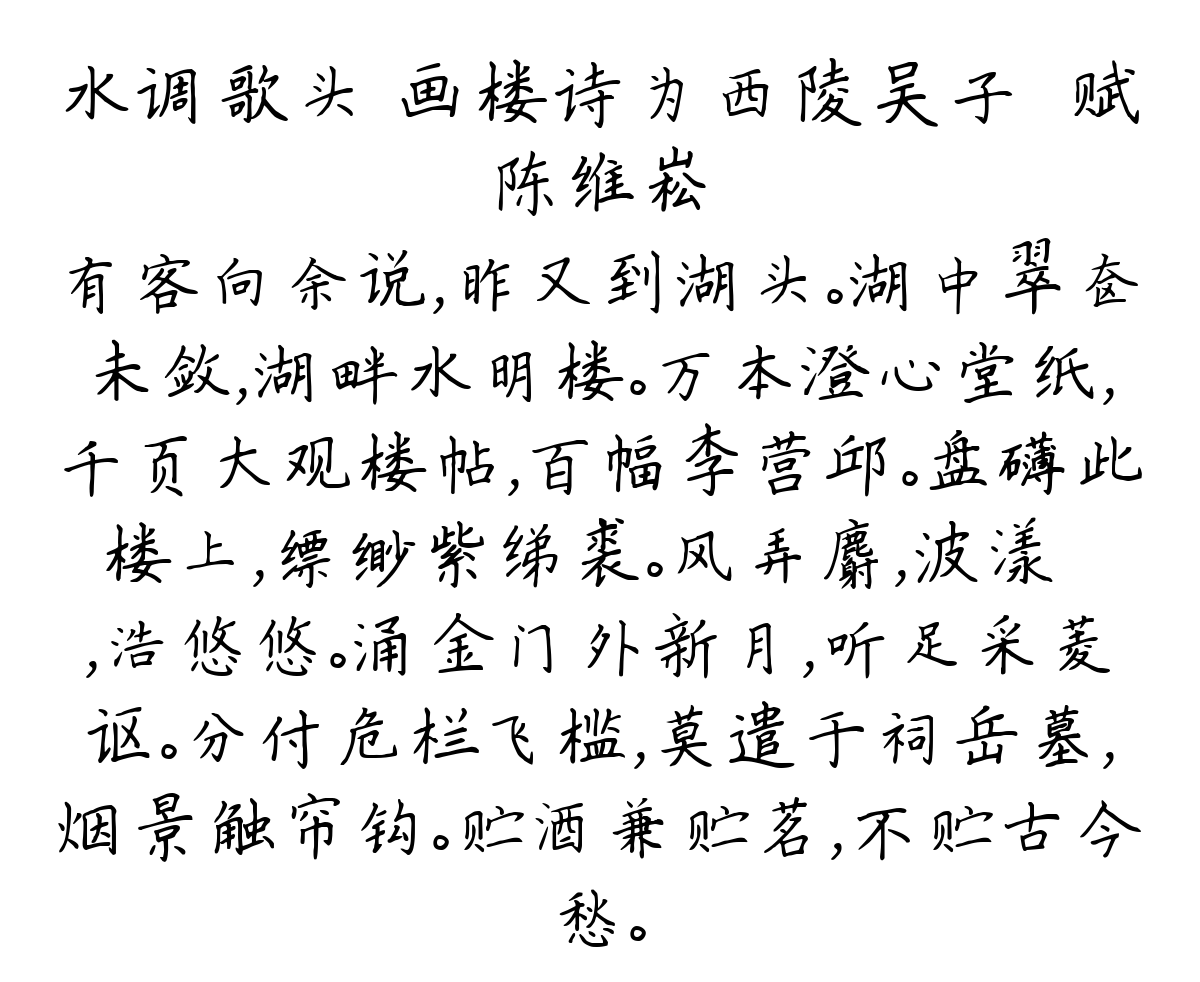 水调歌头 画楼诗为西陵吴子 赋
陈维崧
有客向余说,昨又到湖头。湖中翠奁
未敛,湖畔水明楼。万本澄心堂纸,
千页大观楼帖,百幅李营邱。盘礴此
楼上,缥缈紫绨裘。风弄麝,波漾
,浩悠悠。涌金门外新月,听足采菱
讴。分付危栏飞槛,莫遣于祠岳墓,
烟景触帘钩。贮酒兼贮茗,不贮古今
愁。